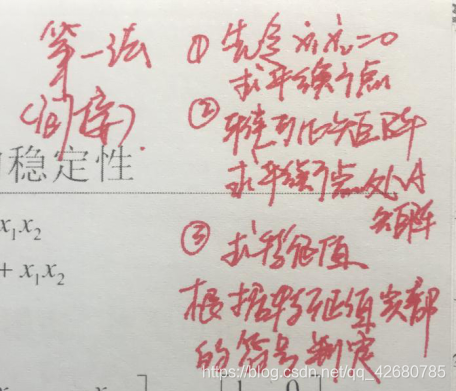 第一法
(间接)
① 先令 ẋ₁ẋ₂=0
求平衡点
② 雅可比矩阵
求平衡点处A
矩阵
③ 求特征值
根据特征值实部
的符号判定
稳定性
x₁x₂
+ x₁x₂
https://blog.csdn.net/qq_42680785